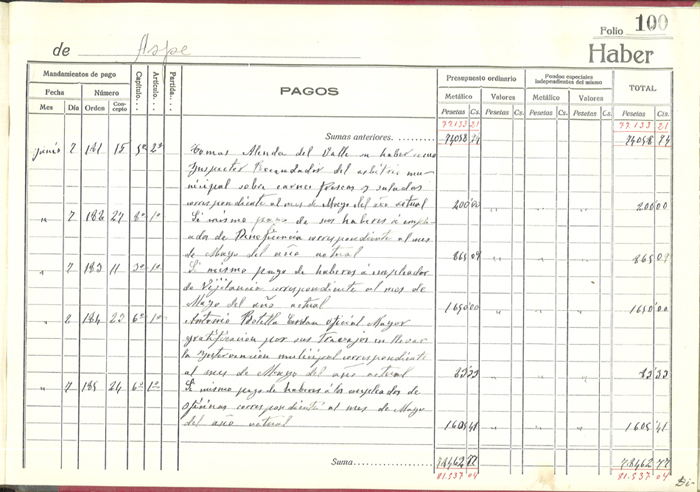 Folio 100
de Aspe
Haber
Mandamientos de pago
Fecha Número
Mes Día Orden Concepto
Capítulo. . .
Artículo. . .
Partida. . .
PAGOS
Presupuesto ordinario
Metálico Valores
Pesetas Cs. Pesetas Cs.
Fondos especiales independientes del mismo
Metálico Valores
Pesetas Cs. Pesetas Cs.
TOTAL
Pesetas Cts.
77.133 21 77.133 21
Sumas anteriores. 74058 74 74058 74
junio 7 181 15 5º 2º Tomas Alenda del Valle su haber como
Inspector Recaudador del arbitrio mu-
nicipal sobre carnes frescas y saladas
correspondiente al mes de Mayo del año actual 200'00 200'00
" 7 182 27 8º 1º Si mismo pago de sus haberes á emplea-
da de Beneficencia correspondiente al mes
de Mayo del año actual 865 09 865 09
" 7 183 11 3º 1º Si mismo pago de haberes á empleados
de Vigilancia correspondiente al mes de
Mayo del año actual 1650'00 1650'00
" 8 184 23 6º 1º Antonio Botella oficial Mayor
gratificación por sus Trabajos en llevar
la Intervención municipal correspondiente
al mes de Mayo del año actual 83'33 83'33
" 7 185 24 6º 1º Si mismo pago de haberes á los empleados de
oficinas correspondiente al mes de Mayo
del año actual 1605 41 1605 41
Suma 78462 77 78462 77
81.537 04 81.537 04